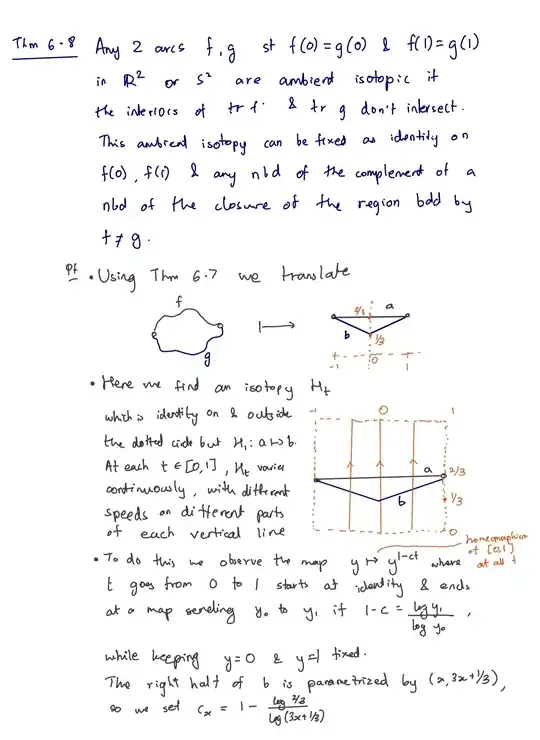 Thm 6.8 Any 2 arcs f, g st f(0) = g(0) & f(1) = g(1)
in R² or S² are ambient isotopic if
the interiors of tr f & tr g don't intersect.
This ambient isotopy can be fixed as identity on
f(0), f(1) & any nbd of the complement of a
nbd of the closure of the region bdd by
f & g.
Pf • Using Thm 6.7 we translate
f
g
2/3
a
b
1/3
-1
0
1
• Here we find an isotopy H_t
which is identity on & outside
the dotted circle but H₁: a ↦ b.
At each t ∈ [0,1], H_t varies
continuously, with different
speeds on different parts
of each vertical line
-1
0
1
a
2/3
b
1/3
0
• To do this we observe the map y ↦ y^{1-ct} where
homeomorphism
of [0,1]
at all t
t goes from 0 to 1 starts at identity & ends
at a map sending y₀ to y₁ if 1-c = log y₁ / log y₀ ,
while keeping y=0 & y=1 fixed.
The right half of b is parametrized by (x, 3x+1/3),
so we set c_x = 1 - log 2/3 / log (3x+1/3)